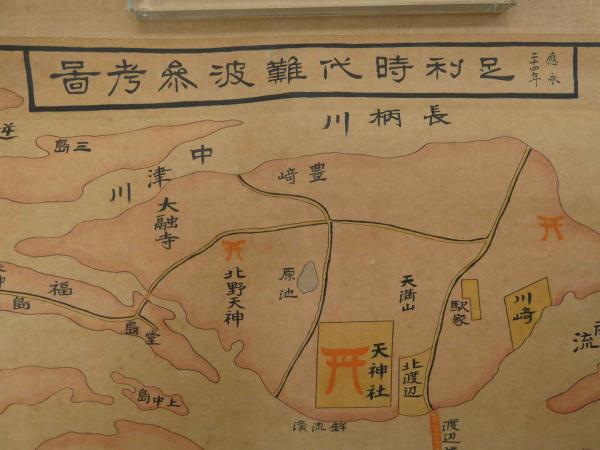 足利時代難波參考圖
應永
二十四年
長柄川
中津川
三島
豊﨑
大融寺
北野天神
原池
天満山
駅家
川﨑
福島
堂島
上中島
天神社
北渡辺
渡辺
鉾流濱
流